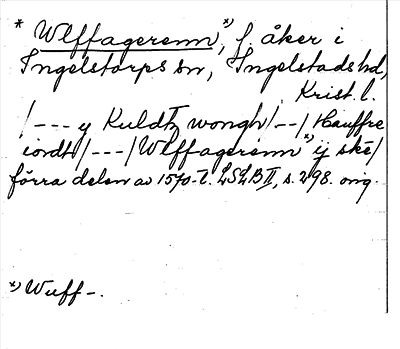 * Wlffagerenn *), f. åker i
Ingelstorps sn, Ingelstads hd,
Krist. l.
/--- y Kuldtz wongh/--/Hauffre
iordt/---/Wlffagerenn *) ij ske/
förra delen av 1570-t. LSLB II, s. 298. orig.
*) Wuff-.